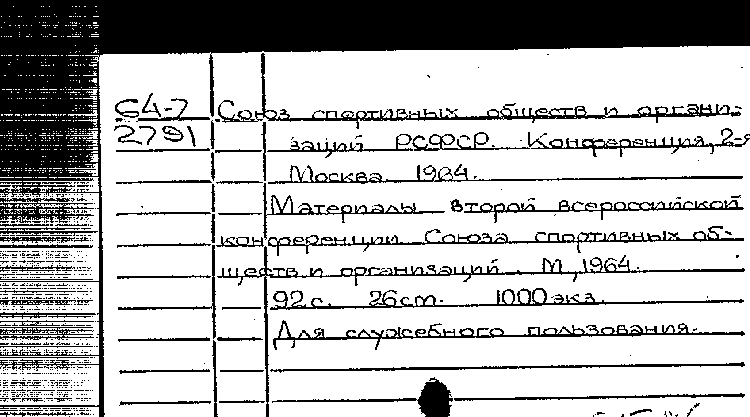 64-7 Союз спортивных обществ и органи-
2791 заций РСФСР. Конференция, 2-я
Москва 1964.
Материалы второй всероссийской
конференции Союза спортивных об-
ществ и организаций. М, 1964.
92 с. 26 см. 1000 экз.
Для служебного пользования.